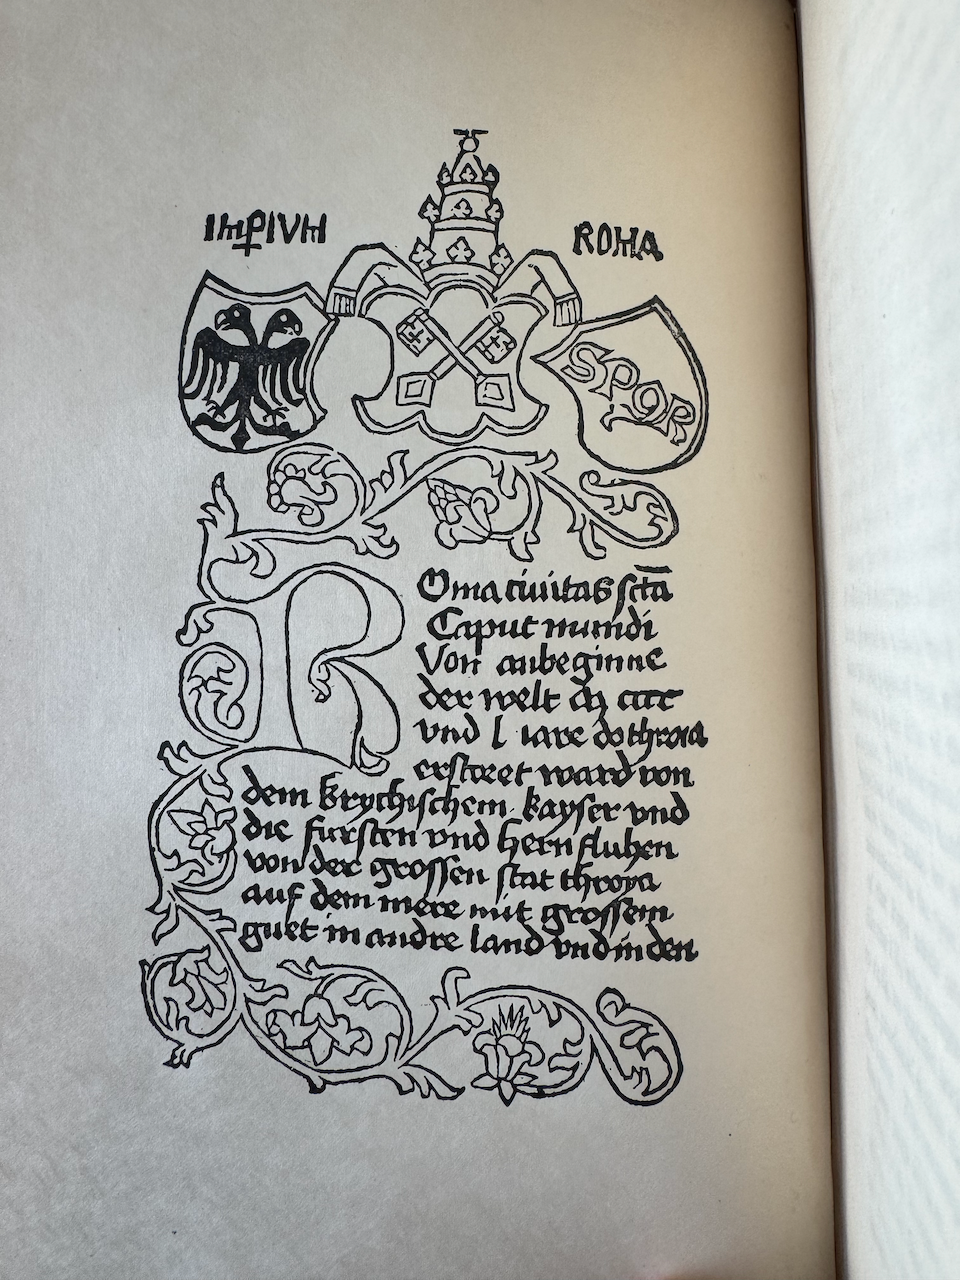 IMꝑIVM
ROMA
SPQR
Roma civitas sctā
Caput mundi
Von anbeginne
der welt
vnd l iare do throia
erstoret ward von
dem krychischem kayser vnd
die fursten vnd hern fluhen
von der grossen stat throya
auf dem mere mit grossem
guet in andre land vnd in den